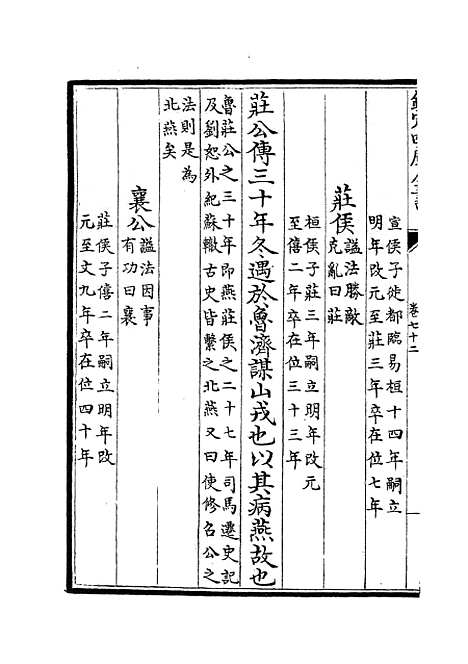 欽定四庫全書
卷七十二
宣侯子徙都臨易桓十四年嗣立
明年改元至莊三年卒在位七年
莊侯謚法勝敵
克亂曰莊
桓侯子莊三年嗣立明年改元
至僖二年卒在位三十三年
莊公傳三十年冬遇於魯濟謀山戎也以其病燕故也
魯莊公之三十年即燕莊侯之二十七年司馬遷史記
及劉恕外紀蘇轍古史皆繫之北燕又曰使修召公之
法則是為
北燕矣
襄公謚法因事
有功曰襄
莊侯子僖二年嗣立明年改
元至文九年卒在位四十年